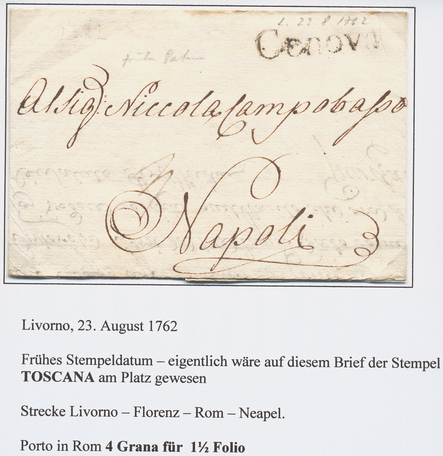 L. 23 8 1762
Genova
Al Sigr Niccola Campobasso
Napoli
Livorno, 23. August 1762
Frühes Stempeldatum – eigentlich wäre auf diesem Brief der Stempel
TOSCANA am Platz gewesen
Strecke Livorno – Florenz – Rom – Neapel.
Porto in Rom 4 Grana für 1½ Folio